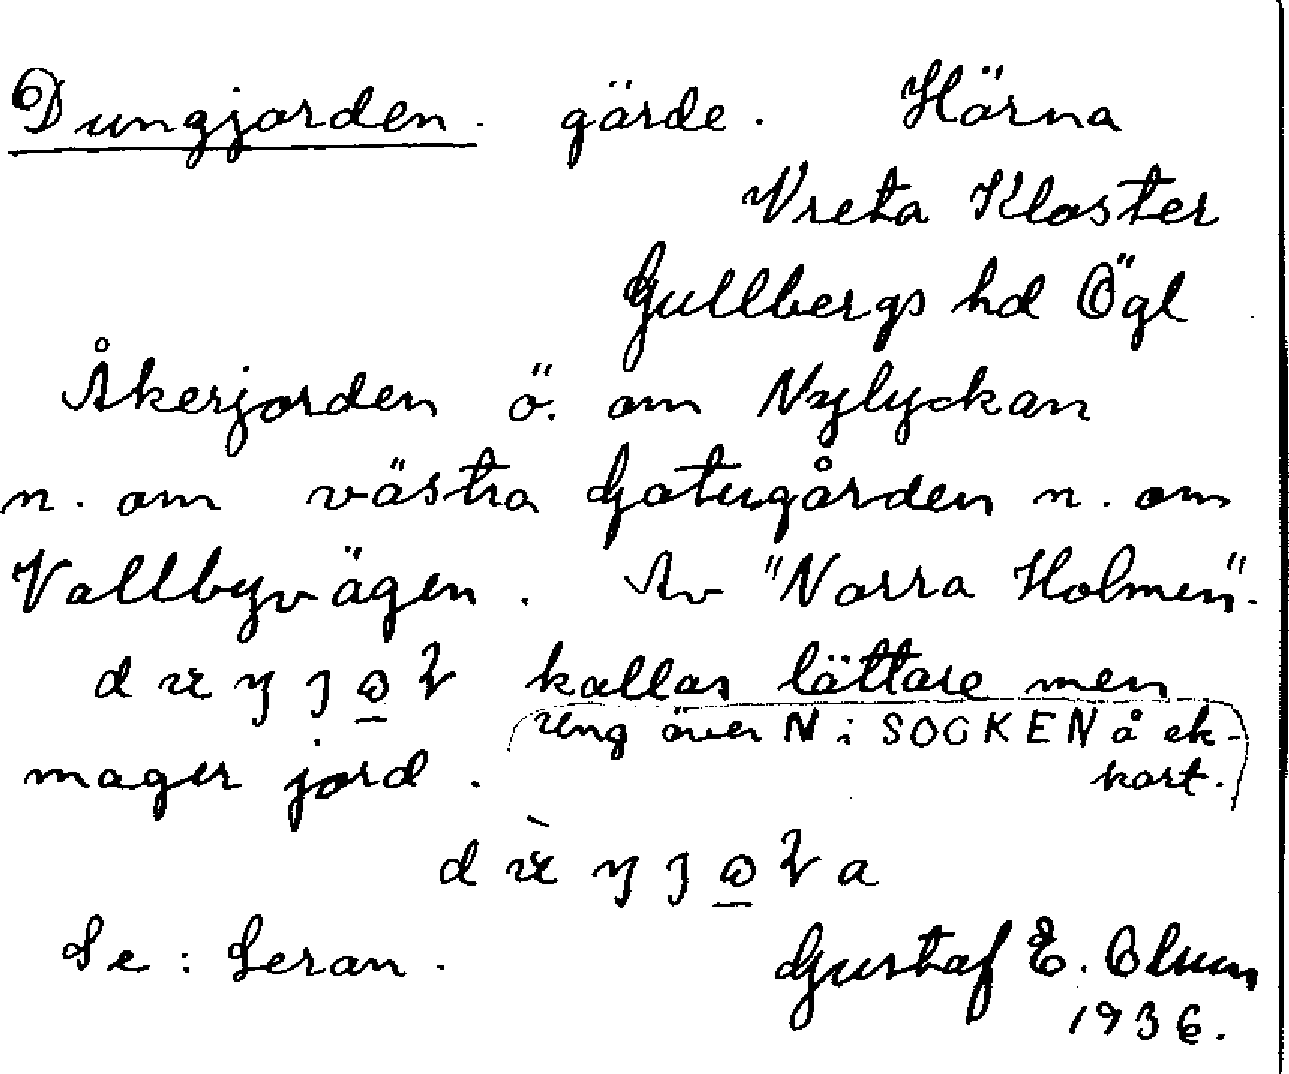 Dungjorden. gärde. Härna
Vreta Kloster
Gullbergs hd Ögl
Åkerjorden ö. om Nylyckan
n. om västra Gatugården n. om
Vallbyvägen. Av "Norra Holmen".
kallas lättare men
över N i SOCKEN å ek-
mager jord. kort.
Se: Leran. Gustaf E. Olsson
1936.